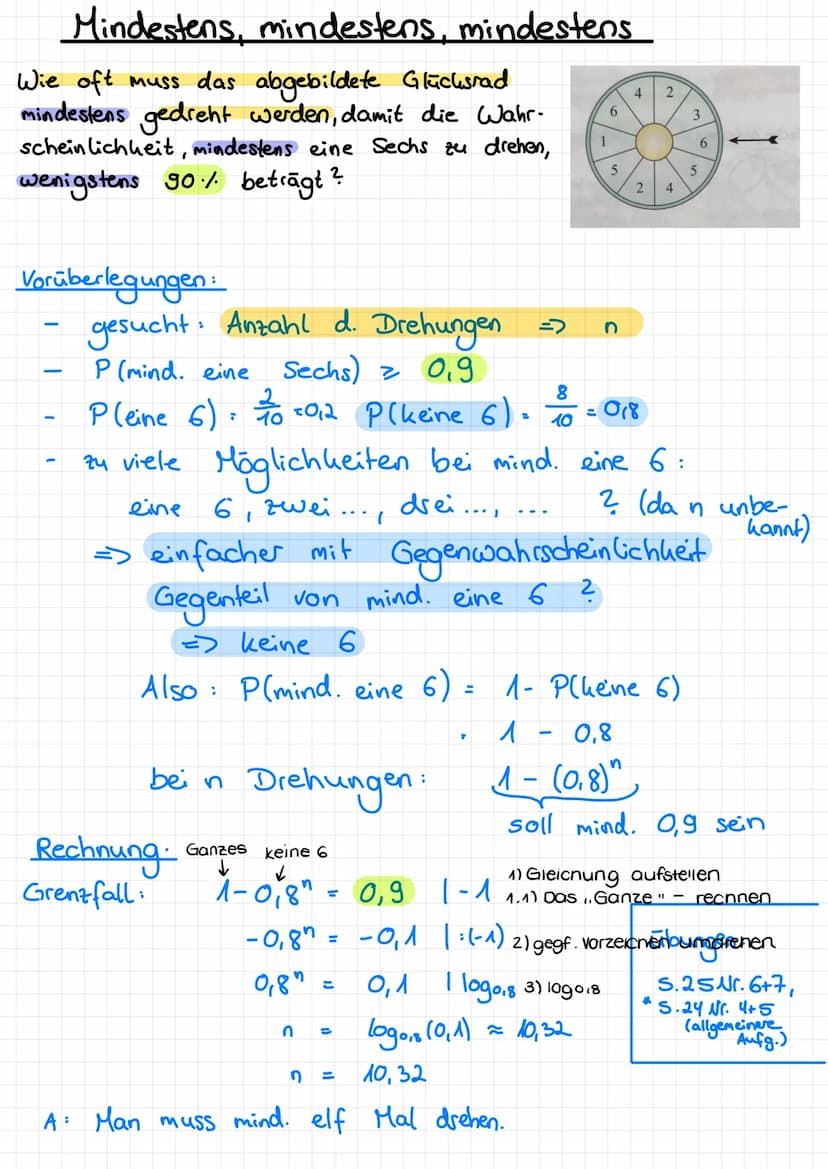 Mindestens, mindestens, mindestens
Wie oft muss das abgebildete Glücksrad
mindestens gedreht werden, damit die Wahr-
scheinlichkeit, mindestens eine Sechs zu drehen,
wenigstens 90% beträgt?
4 2
6 3
1 6
5 5
2 4
Vorüberlegungen:
- gesucht: Anzahl d. Drehungen => n
- P(mind. eine Sechs) ≥ 0,9
- P(eine 6) = 2/10 = 0,2 P(keine 6) = 8/10 = 0,8
- zu viele Möglichkeiten bei mind. eine 6:
eine 6, zwei ..., drei ..., ... ? (da n unbe-
kannt)
=> einfacher mit Gegenwahrscheinlichkeit
Gegenteil von mind. eine 6 ?
=> keine 6
Also: P(mind. eine 6) = 1 - P(keine 6)
= 1 - 0,8
bei n Drehungen: 1 - (0,8)ⁿ
soll mind. 0,9 sein
Rechnung: Ganzes keine 6
Grenzfall: 1 - 0,8ⁿ = 0,9 | -1
1) Gleichung aufstellen
1.1) Das "Ganze" - rechnen
-0,8ⁿ = -0,1 | :(-1) 2) ggf. vorzeichen umdrehen
Übungen
0,8ⁿ = 0,1 | log₀,₈ 3) log₀,₈
n = log₀,₈(0,1) ≈ 10,32
n = 10,32
S.25 Nr. 6+7,
* S.24 Nr. 4+5
(allgemeinere
Aufg.)
A: Man muss mind. elf Mal drehen.